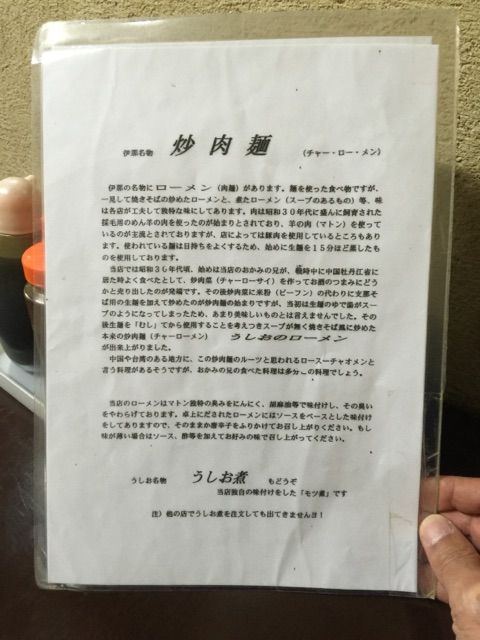 伊那名物 炒肉麺 (チャー・ロー・メン)
伊那の名物にローメン(肉麺)があります。麺を使った食べ物ですが、
一見して焼きそばの炒めたローメンと、煮たローメン(スープのあるもの)等、味
は各店が工夫して独特な味にしてあります。肉は昭和30年代に盛んに飼育された
採毛用のめん羊の肉を使ったのが始まりとされており、羊の肉(マトン)を使って
いるのが主流とされておりますが、店によっては豚肉を使用しているところもあり
ます。使われている麺は日持ちをよくするため、始めに生麺を15分ほど蒸したも
のを使用しております。
当店では昭和36年代頃、始めは当店のおかみの兄が、戦時中に中国牡丹江省に
居た時よく食べたとして、炒肉菜(チャーローサイ)を作ってお酒のつまみにどう
かと売り出したのが発端です。その後炒肉菜に米粉(ビーフン)の代わりに支那そ
ば用の生麺を加えて炒めたのが炒肉麺の始まりですが、当初は生麺のゆで湯がスー
プのようになってしまったため、あまり美味しいものとは言えませんでした。その
後生麺を「むし」てから使用することを考えつきスープが無く焼きそば風に炒めた
本来の炒肉麺(チャーローメン) うしおのローメン
が出来上がりました。
中国や台湾のある地方に、この炒肉麺のルーツと思われるロースーチャオメンと
言う料理があるそうですが、おかみの兄の食べた料理は多分この料理でしょう。
当店のローメンはマトン独特の臭みをにんにく、胡麻油等で味付けし、その臭い
をやわらげております。卓上にだされたローメンにはソースをベースとした味付け
をしてありますので、そのままか唐辛子をふりかけてお召し上がりください。もし
味が薄い場合はソース、酢等を加えてお好みの味で召し上がってください。
うしお名物 うしお煮 もどうぞ
当店独自の味付けをした「モツ煮」です
注)他の店でうしお煮を注文しても出てきませんヨ!